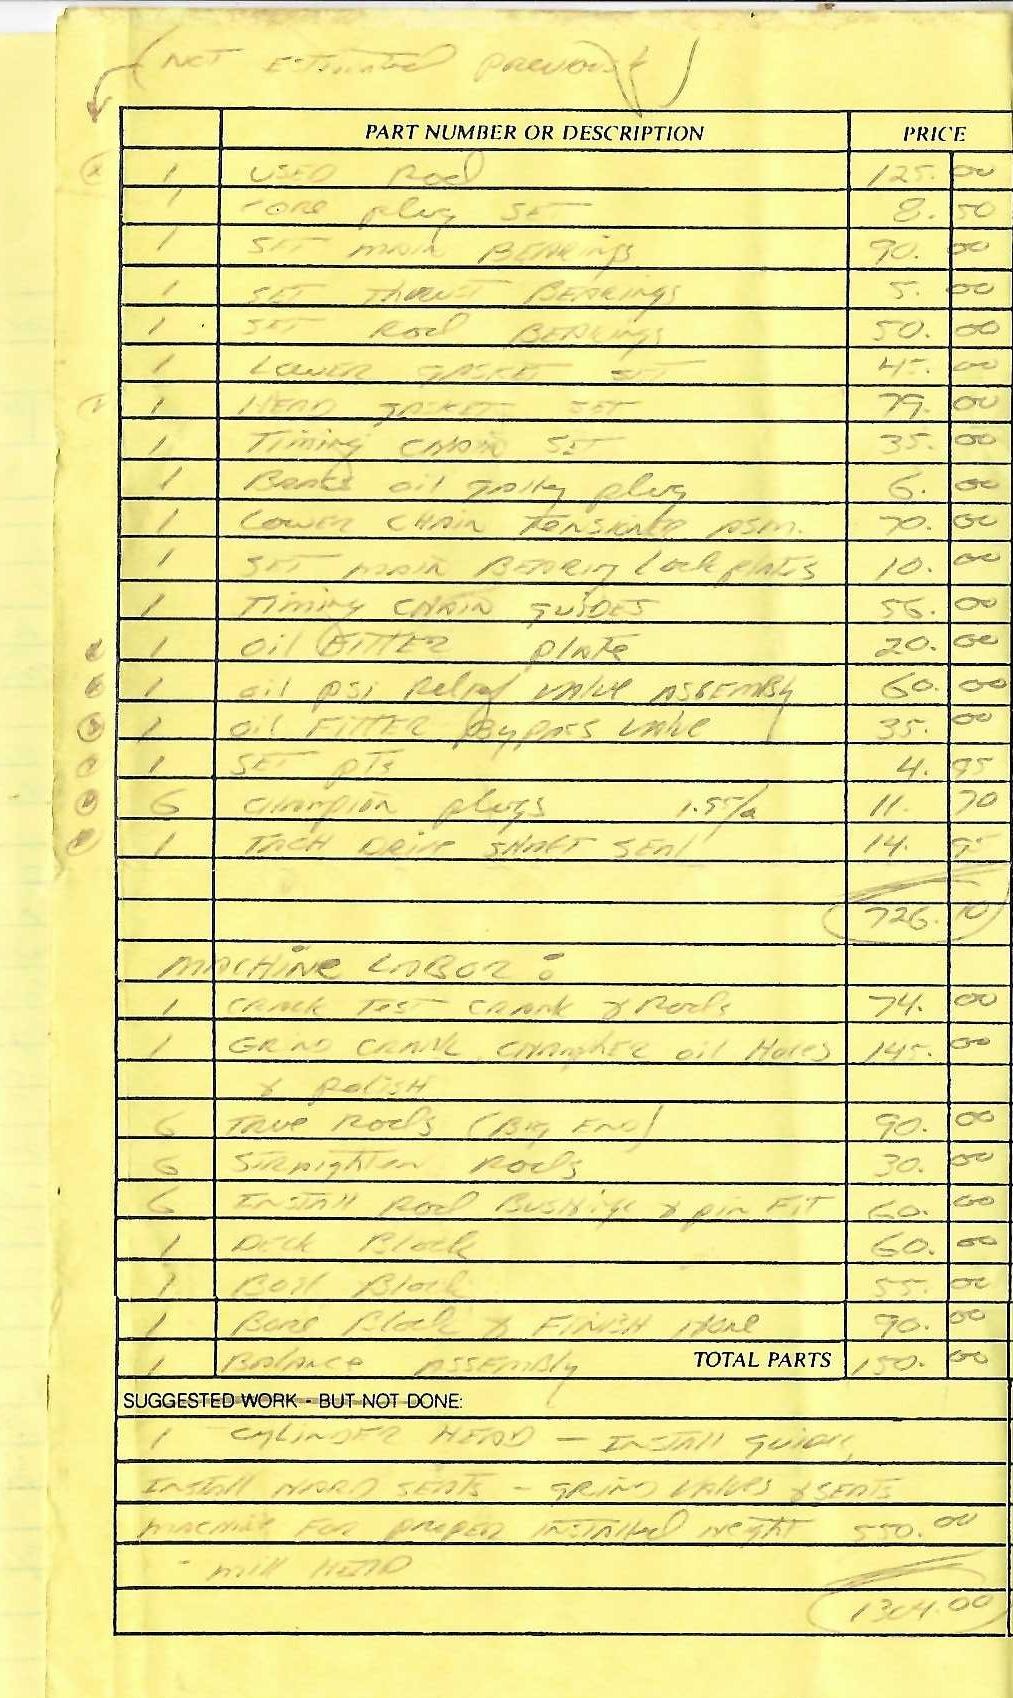 (NOT Estimated previously)
PART NUMBER OR DESCRIPTION PRICE
1 USED Rod 125.00
1 core plug SET 8.50
1 SET MAIN BEARINGS 90.00
1 SET THRUST BEARINGS 5.00
1 SET Rod BEARINGS 50.00
1 LOWER GASKET SET 45.00
1 HEAD GASKET SET 79.00
1 Timing CHAIN SET 35.00
1 oil gally plug 6.00
1 LOWER CHAIN TENSIONER ASM. 70.00
1 SET MAIN BEARING Lock plates 10.00
1 Timing CHAIN GUIDES 56.00
1 oil FILTER plate 20.00
1 oil psi Relief VALVE ASSEMBLY 60.00
1 oil FILTER Bypass VALVE 35.00
1 SET pTs 4.95
6 Champion plugs 1.95/a 11.70
1 TACH DRIVE SHAFT SEAL 14.95
726.10
MACHINE LABOR:
1 CRACK TEST CRANK & Rods 74.00
1 GRIND CRANK CHAMPHER oil Holes 145.00
& POLISH
6 TRUE Rods (BIG END) 90.00
6 STRAIGHTEN Rods 30.00
6 INSTALL Rod Bushings & pin FIT 60.00
1 DECK Block 60.00
1 Boil Block 55.00
1 Bore Block & FINISH Hone 90.00
1 BALANCE ASSEMBLY TOTAL PARTS 150.00
SUGGESTED WORK - BUT NOT DONE:
1 CYLINDER HEAD - INSTALL GUIDES,
INSTALL HARD SEATS - GRIND VALVES & SEATS
MACHINE FOR PROPER INSTALLED HEIGHT 550.00
- MILL HEAD
1304.00